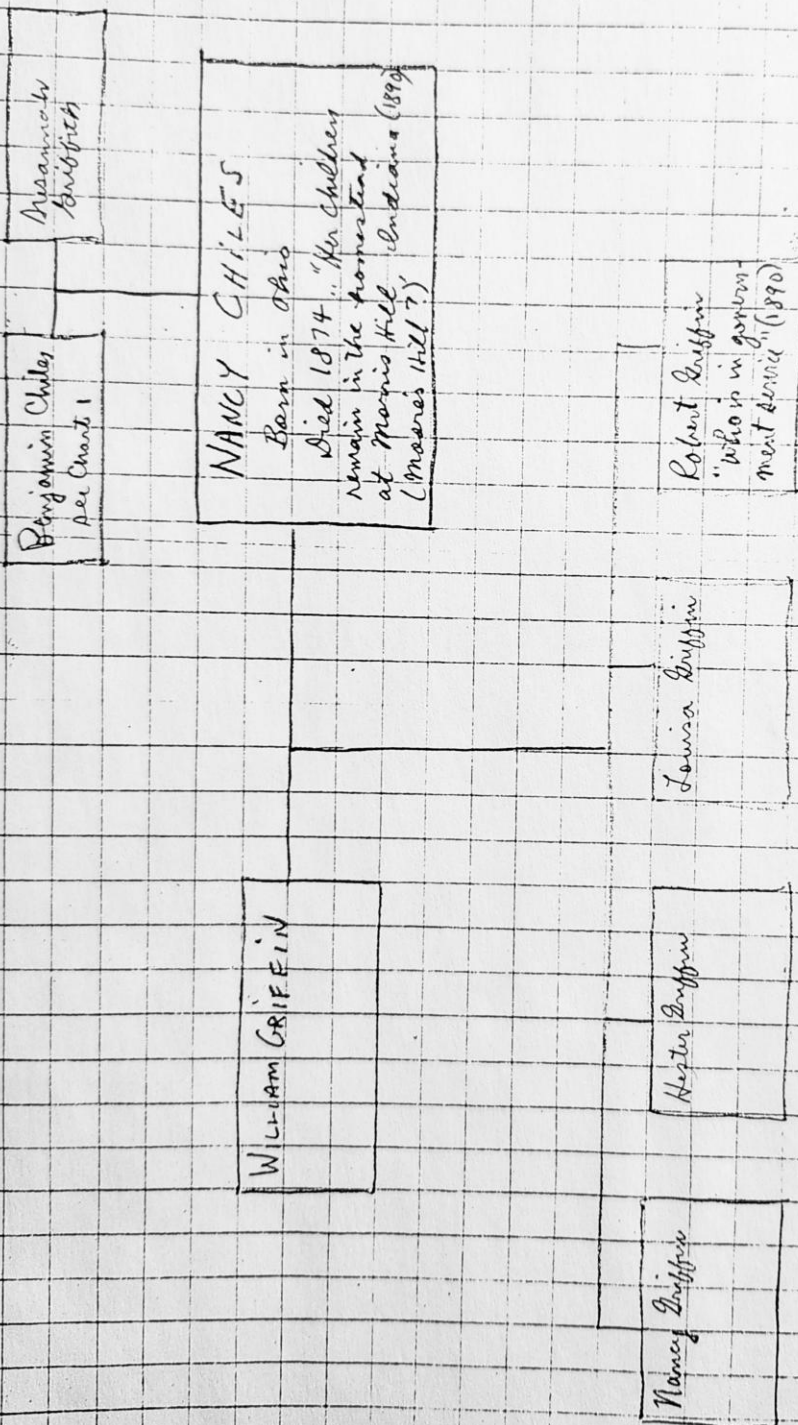 Benjamin Chiles
see Chart 1
Susannah
Griffith
NANCY CHILES
Born in Ohio
Died 1874 "Her children
remain in the homestead
at Morris Hill Indiana (1890)
(Moores Hill?)
WILLIAM GRIFFIN
Nancy Griffin
Hester Griffin
Louisa Griffin
Robert Griffin
"who is in govern-
ment service" (1890)